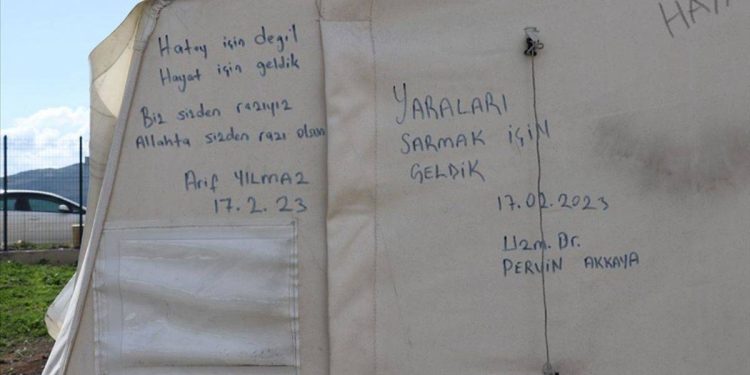 Hatay için değil
Hayat için geldik
Biz sizden razıyız
Allahta sizden razı olsun
Arif YILMAZ
17.2.23
YARALARI
SARMAK İÇİN
GELDİK
17.02.2023
Uzm. Dr.
PERVİN AKKAYA